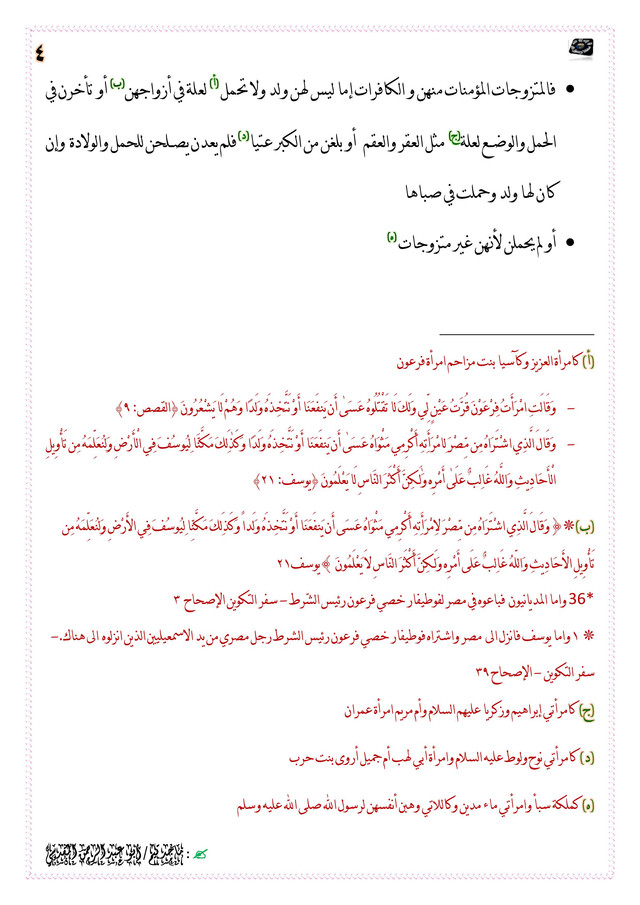 ٤
• فالمتزوجات المؤمنات منهن و الكافرات إما ليس لهن ولد ولا تحمل(أ) لعلة في أزواجهن(ب) أو تأخرن في
الحمل والوضع لعلة(ج) مثل العقر والعقم أو بلغن من الكبر عتيا(د) فلم يعدن يصلحن للحمل والولادة وإن
كان لها ولد وحملت في صباها
• أو لم يحملن لأنهن غير متزوجات(ه)
(أ) كامرأة العزيز وكآسيا بنت مزاحم امرأة فرعون
– وَقَالَتِ امْرَأَتُ فِرْعَوْنَ قُرَّتُ عَيْنٍ لِّي وَلَكَ لَا تَقْتُلُوهُ عَسَىٰ أَن يَنفَعَنَا أَوْ نَتَّخِذَهُ وَلَدًا وَهُمْ لَا يَشْعُرُونَ ﴿القصص: ٩﴾
– وَقَالَ الَّذِي اشْتَرَاهُ مِن مِّصْرَ لِامْرَأَتِهِ أَكْرِمِي مَثْوَاهُ عَسَىٰ أَن يَنفَعَنَا أَوْ نَتَّخِذَهُ وَلَدًا وَكَذَٰلِكَ مَكَّنَّا لِيُوسُفَ فِي الْأَرْضِ وَلِنُعَلِّمَهُ مِن تَأْوِيلِ
الْأَحَادِيثِ وَاللَّهُ غَالِبٌ عَلَىٰ أَمْرِهِ وَلَٰكِنَّ أَكْثَرَ النَّاسِ لَا يَعْلَمُونَ ﴿يوسف: ٢١﴾
(ب)* ﴿ وَقَالَ الَّذِي اشْتَرَاهُ مِن مِّصْرَ لِامْرَأَتِهِ أَكْرِمِي مَثْوَاهُ عَسَى أَن يَنفَعَنَا أَوْ نَتَّخِذَهُ وَلَداً وَكَذَلِكَ مَكَّنَّا لِيُوسُفَ فِي الأَرْضِ وَلِنُعَلِّمَهُ مِن
تَأْوِيلِ الأَحَادِيثِ وَاللّهُ غَالِبٌ عَلَى أَمْرِهِ وَلَكِنَّ أَكْثَرَ النَّاسِ لاَ يَعْلَمُونَ ﴾ يوسف٢١
*36 واما المديانيون فباعوه في مصر لفوطيفار خصي فرعون رئيس الشرط – سفر التكوين الإصحاح ٣
* ١ واما يوسف فانزل الى مصر واشتراه فوطيفار خصي فرعون رئيس الشرط رجل مصري من يد الاسمعيليين الذين انزلوه الى هناك. –
سفر التكوين – الإصحاح ٣٩
(ج) كامرأتي إبراهيم وزكريا عليهم السلام وأم مريم امرأة عمران
(د) كامرأتي نوح ولوط عليه السلام وامرأة أبي لهب أم جميل أروى بنت حرب
(ه) كملكة سبأ وامرأتي ماء مدين وكاللاتي وهبن أنفسهن لرسول الله صلى الله عليه وسلم